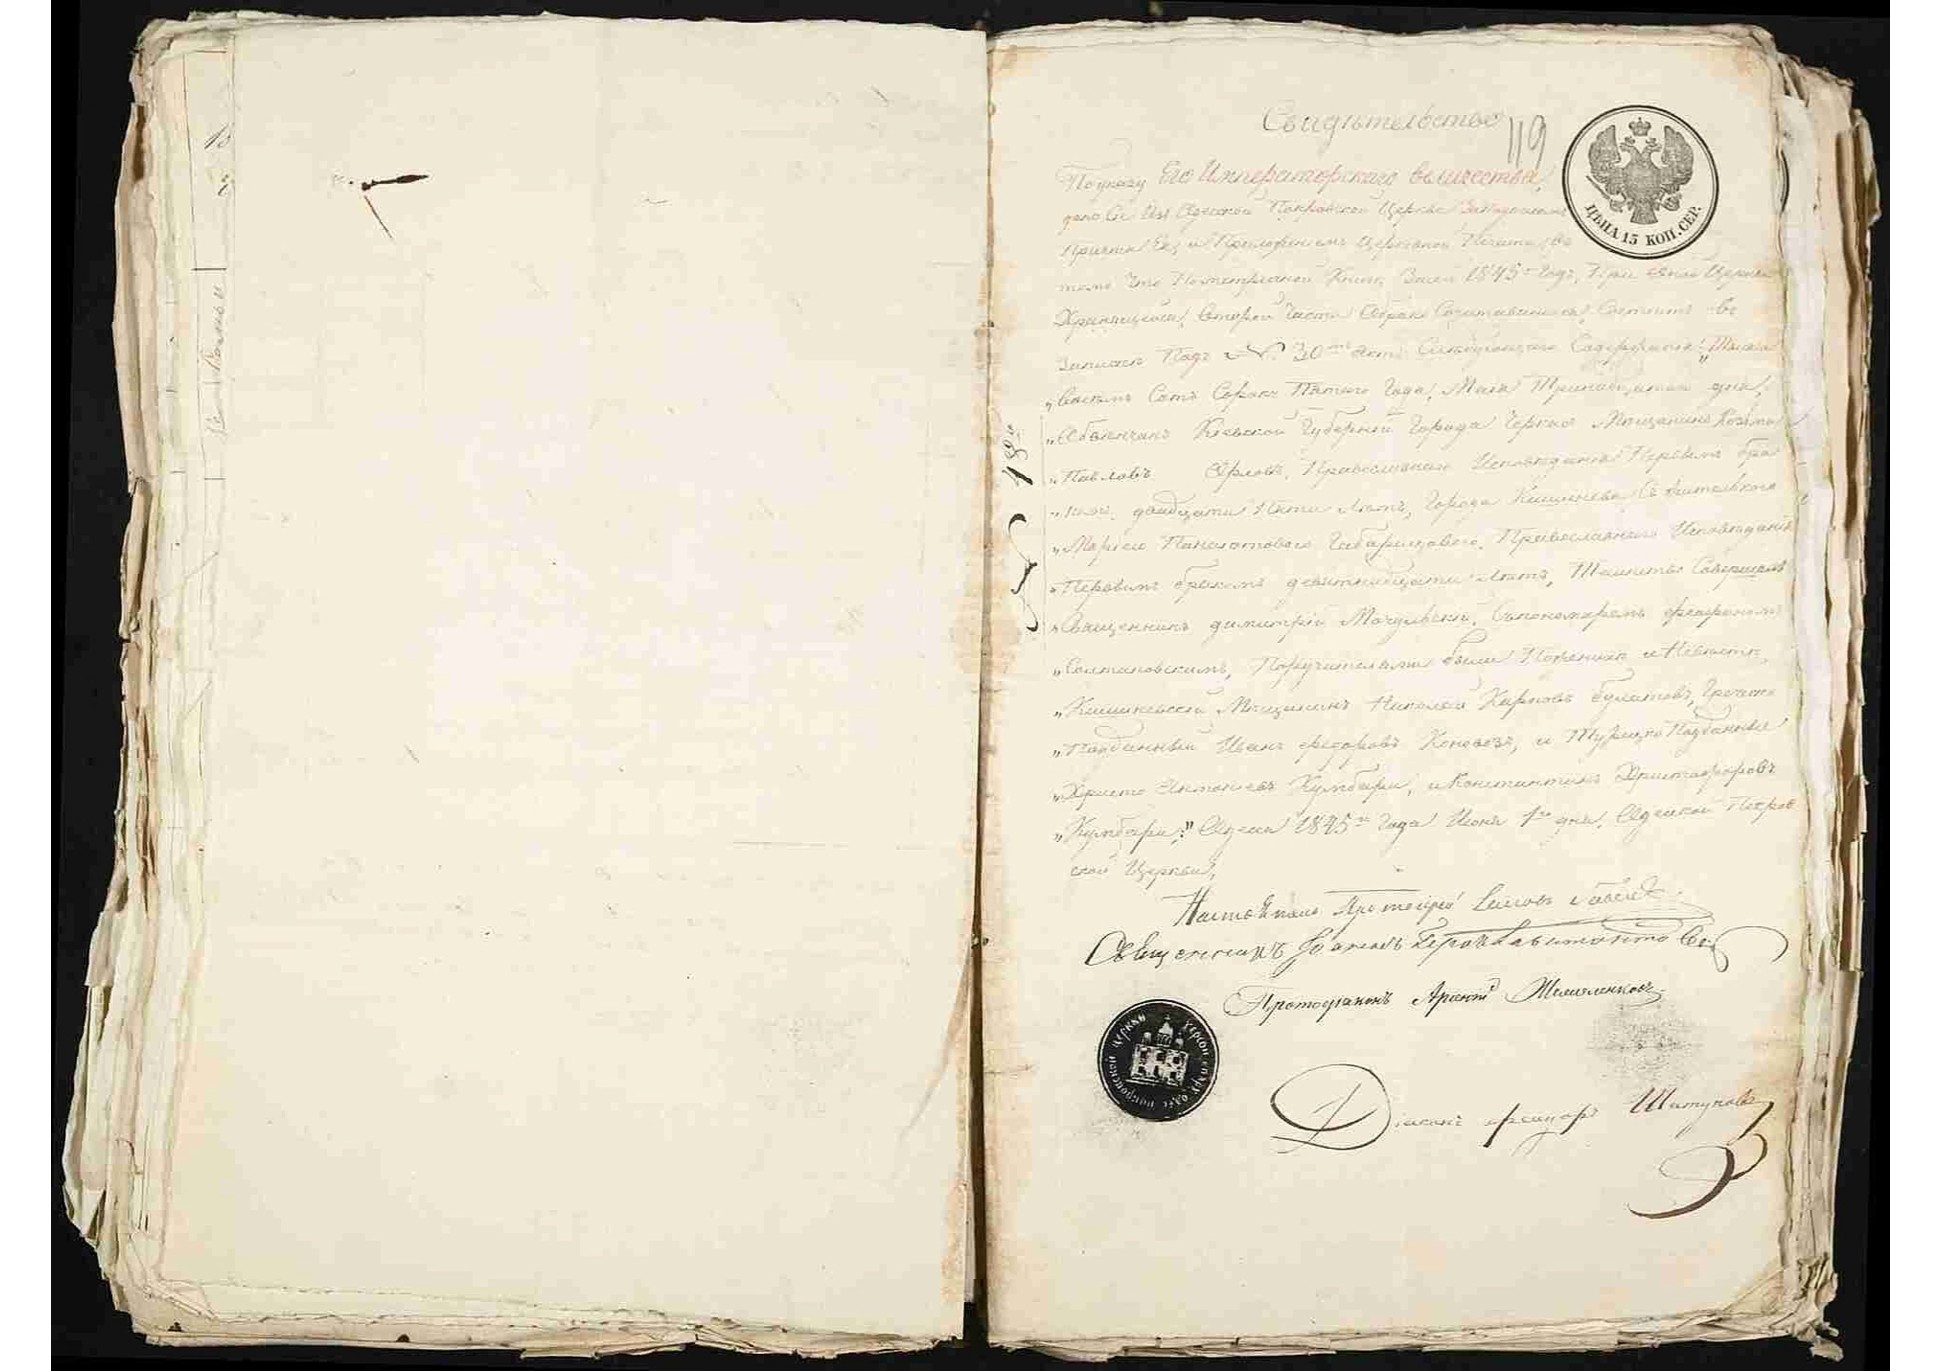 Свидѣтельство
119
По указу Его Императорскаго величества,
дано Сіе Изъ Одеской Покровской Церкви За подписомъ
Причта Ея, и Приложеніемъ Церковной Печати, въ
томъ Что По метрической Книги, Засей 1845го Годъ, При оной Церкви
Хранящейся, второй Части О бракосочитавшихся, Состоитъ въ
Записки Подъ № 30мъ Актъ Слѣдующаго Содержанія: „Тысяча
„Восемъ Сотъ Сорокъ Пятого Года, Маія Тринадцатого дня,
„Обвѣнчанъ Кіевской Губерніи Города Черкасъ Мещанинъ Козьма
„Павловъ Орловъ, Православнаго Исповѣданія Первымъ бра
„комъ, двадцати Пяти лѣтъ, Города Кишинева Съ жителькою
„Маріею Панаіотовою, Православнаго Исповѣданія
„Первымъ бракомъ девятнадцати лѣтъ, Таинство Совершалъ
„Священникъ Димитрій Мачульскій, Съ пономаремъ
„Солтановскимъ, Поручителями были По женихѣ и Невѣстѣ,
„Кишиневскій Мѣщанинъ Николай Карповъ Булатовъ, Греческо
„Подданный Иванъ Федоровъ, и Турецко Подданные
„Христо Антоніевъ Кумбари, и Константинъ Христофоровъ
„Кумбари;" Одесса 1845го Года Іюня 1го дня. Одеской Покров
ской Церкви,
Протоіерей
Священникъ
Протодіаконъ Арсеній
Діаконъ
ЦѢНА 15 КОП. СЕР.
херсон. епарх. одес. покровской церкви